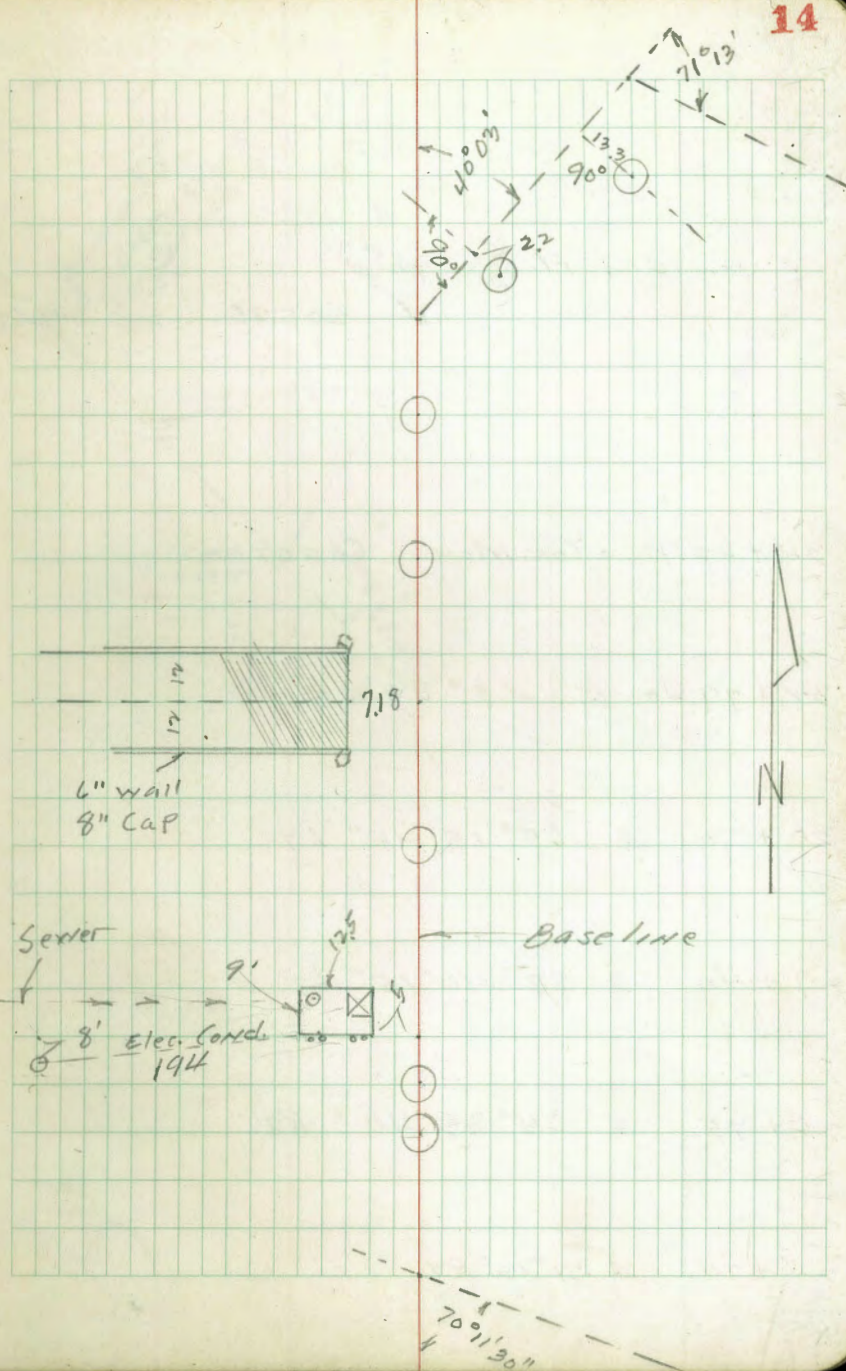 14
71°13'
40°03'
13.3
90°
90°
2.2
12
7.18
12
6" wall
8" Cap
N
Sewer
Baseline
9'
12.5'
5
8' Elec. Cond.
194
70°11'30"